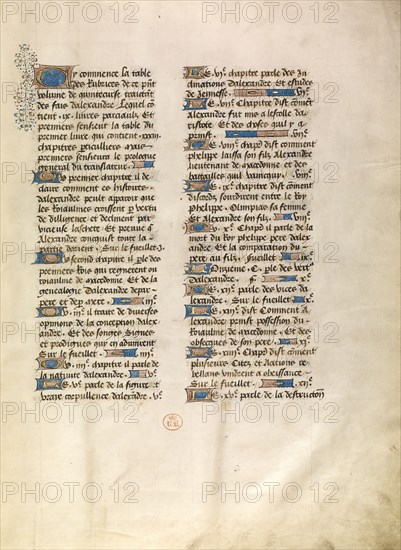 Cy commence la table
des Rubrices de ce pnt
volume de quintecurse traitāt
des fais dalexandre Lequel cō
tient .ix. livres parciaulx Et
premiers sensieut la table du
premier livre qui contient .xxxii.
chapitres particuliers Mais
premiers sensieuvra le prologue
general du translateur
Le premier chapitre il de
claire comment les histoires
dalexandre peult apparoir que
les Roiaulmes croissent par vertu
de dilligence et declinent par
vicieuse laschete Et preuve que
Alexandre conquist toute la
partie dorient Sur le fueillet .j.
Le second chapitre il ple des
premiers Rois qui regnerent ou
roiaulme de macedone Et de la
genealogie dalexandre de par
pere et de par mere iij.e
Le iij.e il traite de diverses
opinions de la conception dalex
andre Et des songes Signes
et prodiques qui en advinrent
Sur le fueillet iiij.e
Le iiij.e chapitre il parle de
la nativite dalexandre v.e
Le v.e parle de la figure et
vraye corpulence dalexandre .v.e
Le vi.e chapitre parle des In
clinations dalexandre Et estudes
de Jenesse
Le vij.e Chapitre dist comēt
Alexandre fut mis a lescolle da
ristote Et des choses quil y a
prinst
Le viij.e chapitre dist comment
phelippe laissa son filz Alexandre
lieutenant de macedonne Et des
battailles quil vainquy
Le ix.e chapitre dist cōment
discorde sourdirent entre le Roy
phelippe Olimpias sa femme
Et Alexandre son filz
Le x.e Chapitre il parle de la
mort du Roy phelippe pere dalex
andre Et la comparation du
pere au filz fueillet ix.e
Le Onzieme C. ple des vert
dalexandre f x.e
Le xij.e parle des vices da
lexandre Sur le fueillet
Le xiij.e dist Comment A
lexandre prinst possession du
Roiaulme de macedonne Et des
obseques de son pere
Le xiiij.e Chapitre dist cōment
plusieurs Citez et nations re
bellans vindrent a obeissance
Sur le fueillet xij.e
Le xv.e parle de la destruction
PHOTO 12